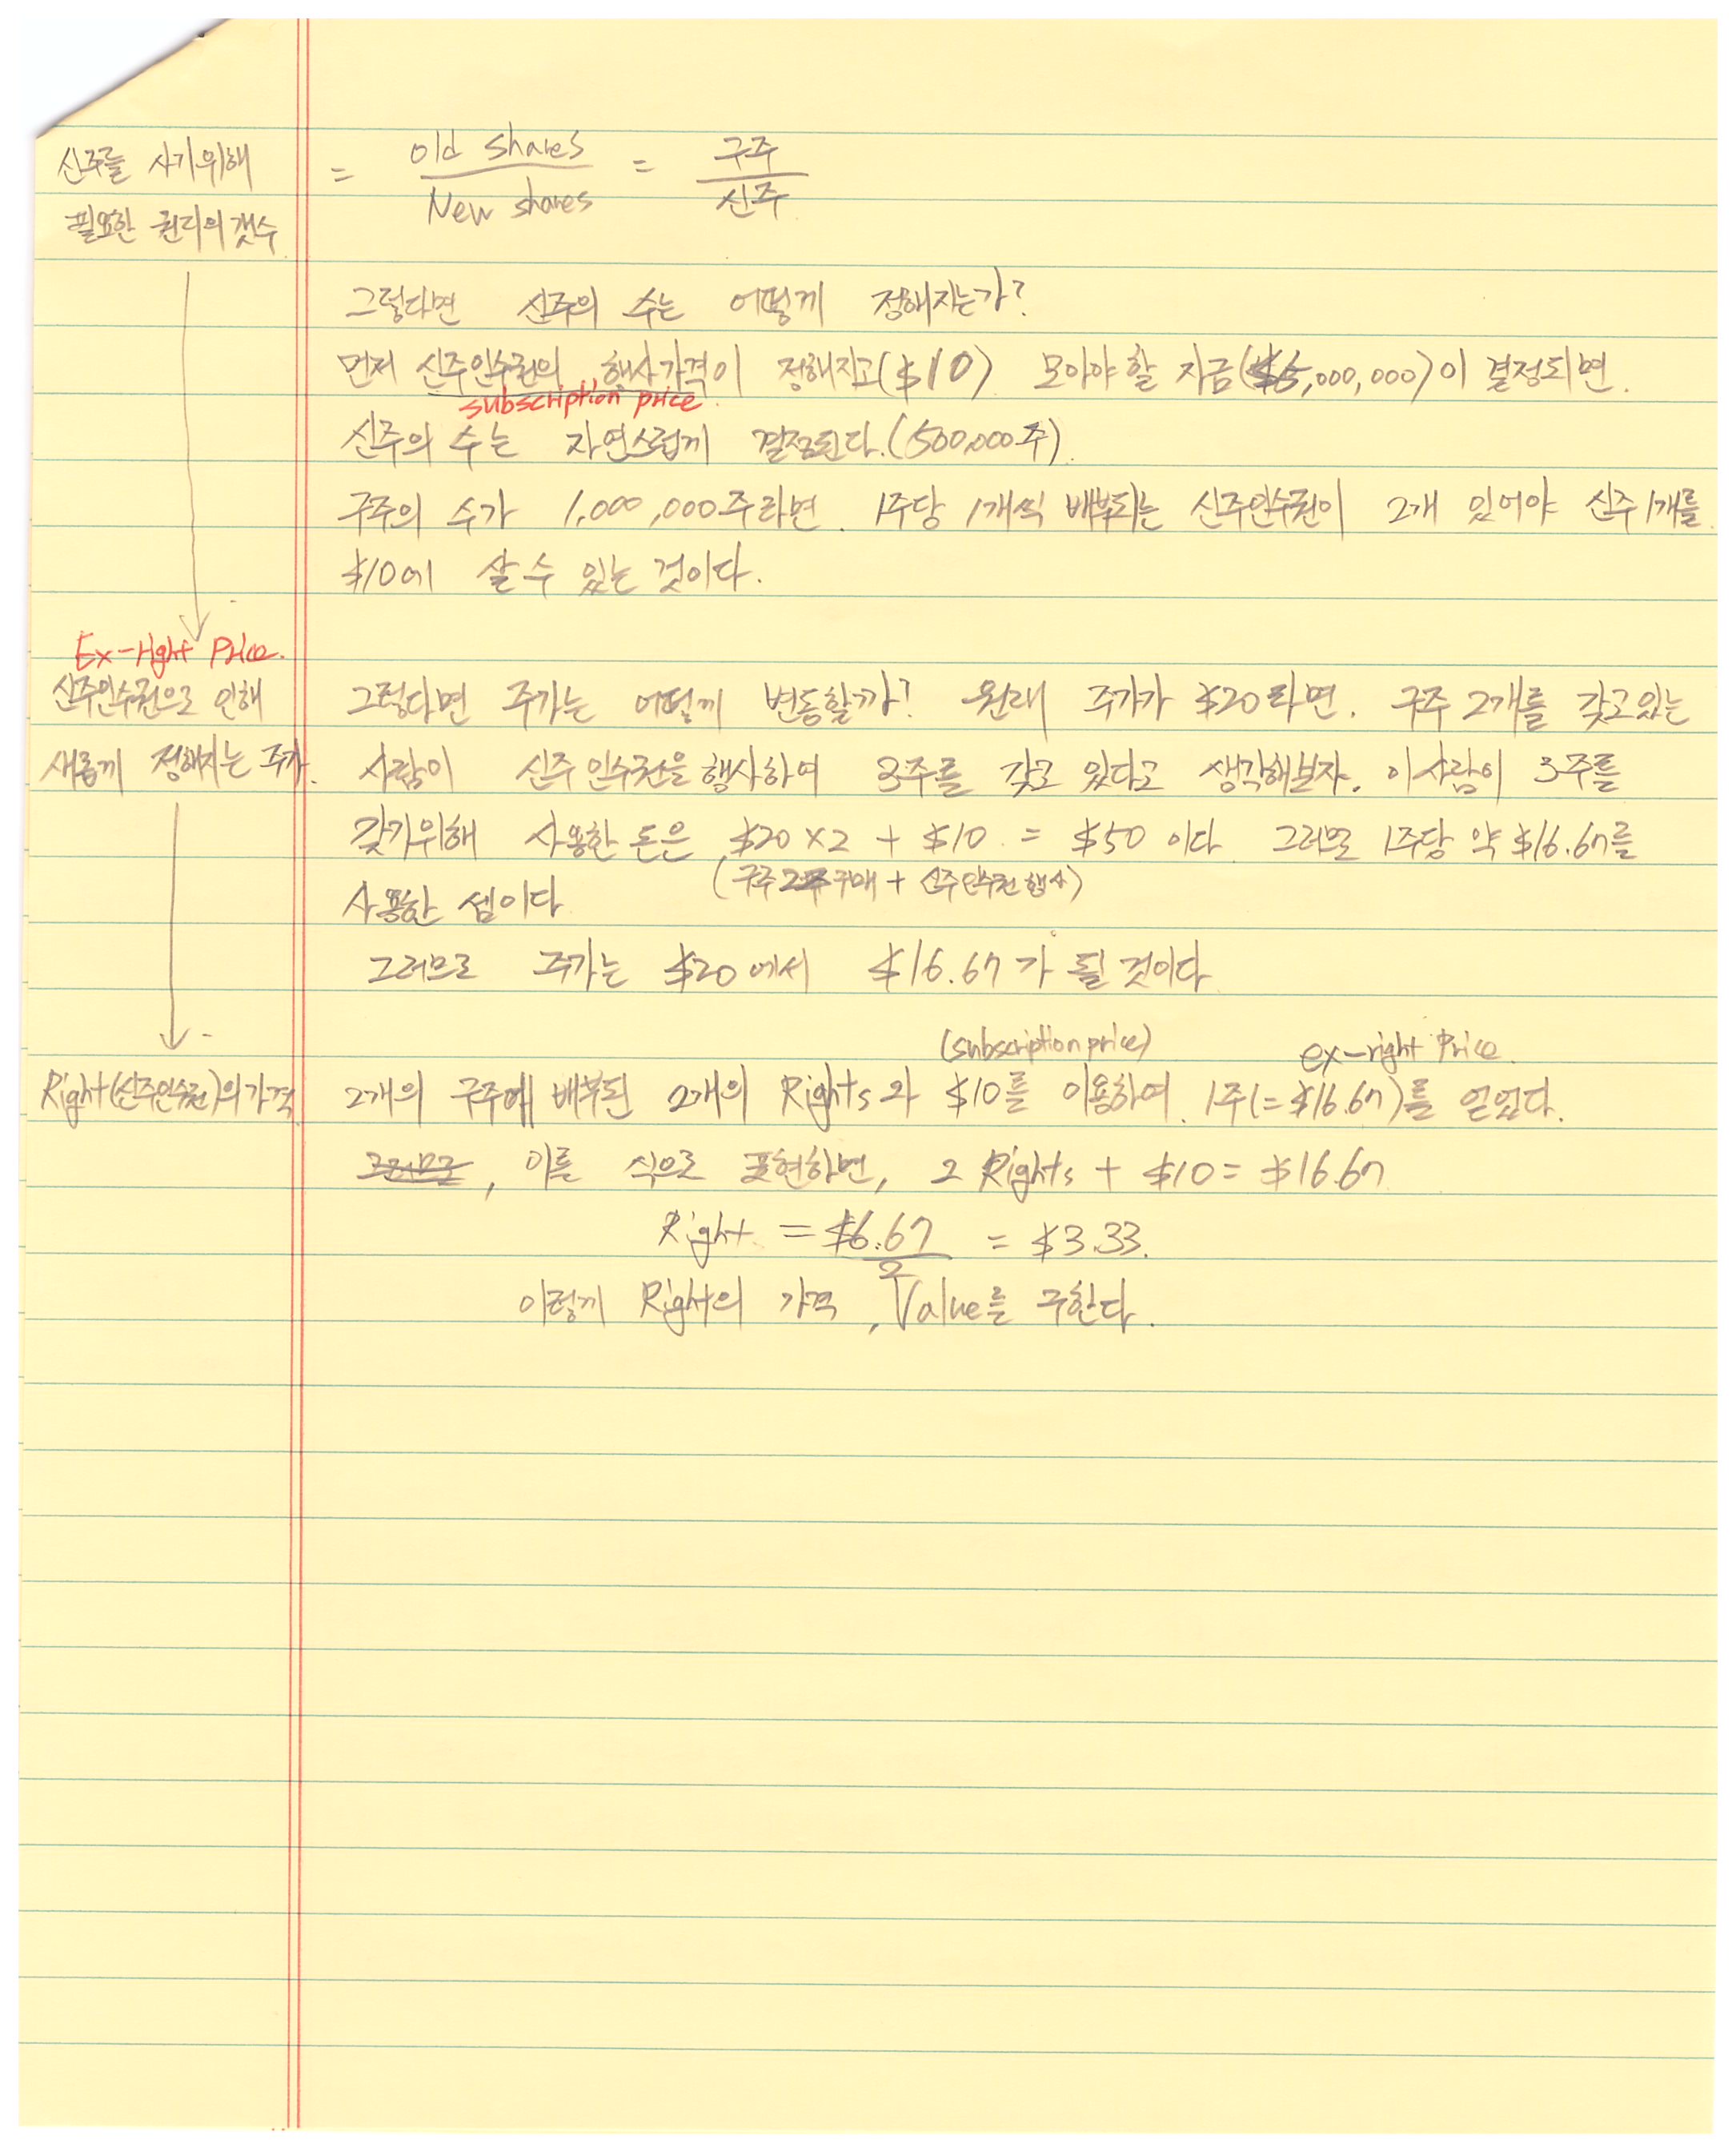 신주를 사기위해 = old shares / New shares = 구주 / 신주
필요한 권리의 갯수
그렇다면 신주의 수는 어떻게 정해지는가?
먼저 신주인수권의 행사가격이 정해지고($10) 모아야 할 자금($5,000,000)이 결정되면.
subscription price
신주의 수는 자연스럽게 결정된다.(500,000주).
구주의 수가 1,000,000주라면. 1주당 1개씩 배부되는 신주인수권이 2개 있어야 신주 1개를
$10에 살 수 있는 것이다.
Ex-right Price.
신주인수권으로 인해
새롭게 정해지는 주가.
그렇다면 주가는 어떻게 변동할까? 원래 주가가 $20라면. 구주 2개를 갖고있는
사람이 신주인수권을 행사하여 3주를 갖고 있다고 생각해보자. 이사람이 3주를
갖기위해 사용한 돈은 $20×2 + $10 = $50 이다. 그러므로 1주당 약 $16.67를
(구주 구매 + 신주인수권 행사)
사용한 셈이다
그러므로 주가는 $20에서 $16.67가 될 것이다
(subscription price) ex-right Price.
Right(신주인수권)의 가격
2개의 구주에 배부된 2개의 Rights와 $10를 이용하여. 1주(=$16.67)를 얻었다.
그러므로, 이를 식으로 표현하면, 2 Rights + $10 = $16.67
Right = $6.67 / 2 = $3.33.
이렇게 Right의 가격, Value를 구한다.